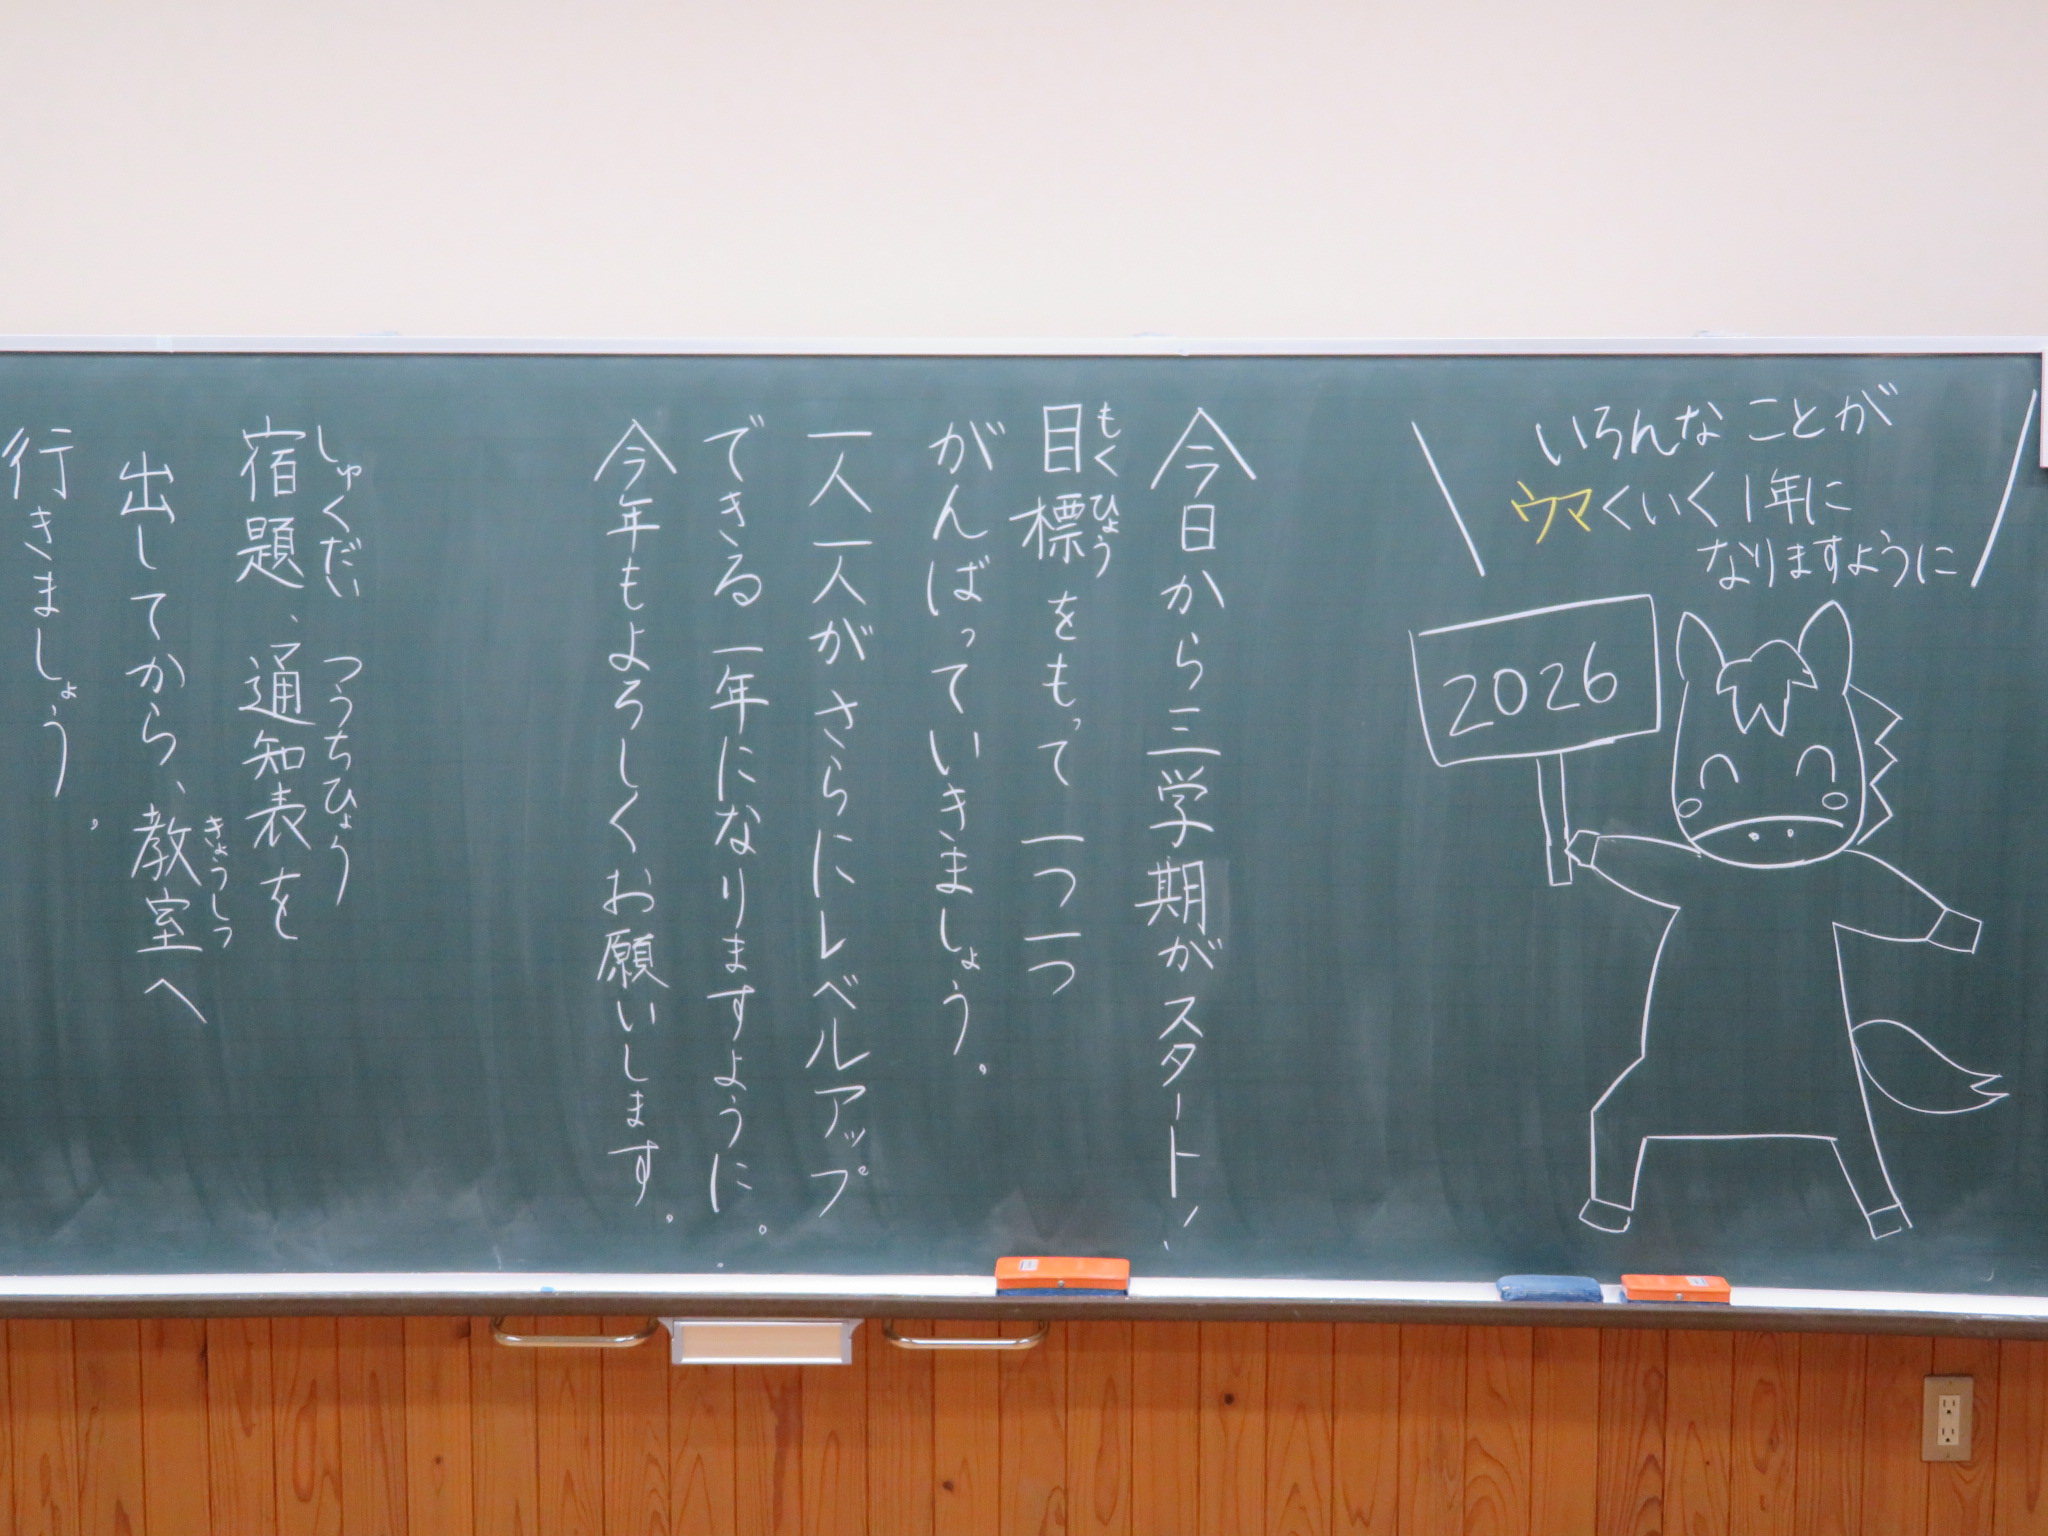 いろんなことが
ウマくいく1年に
なりますように
2026
今日から三学期がスタート!
もくひょう
目標をもって一つ一つ
がんばっていきましょう。
一人一人がさらにレベルアップ
できる一年になりますように。
今年もよろしくお願いします。
しゅくだい つうちひょう
宿題、通知表を
きょうしつ
出してから、教室へ
行きましょう。